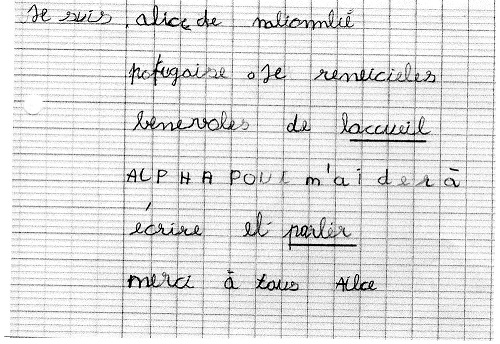 Je suis. alice de nationnalié
potugaise . Je remeicieles
bénévoles de laccueil
ALPHA POUR m'aider à
écrire et parler
merci à tous Alice